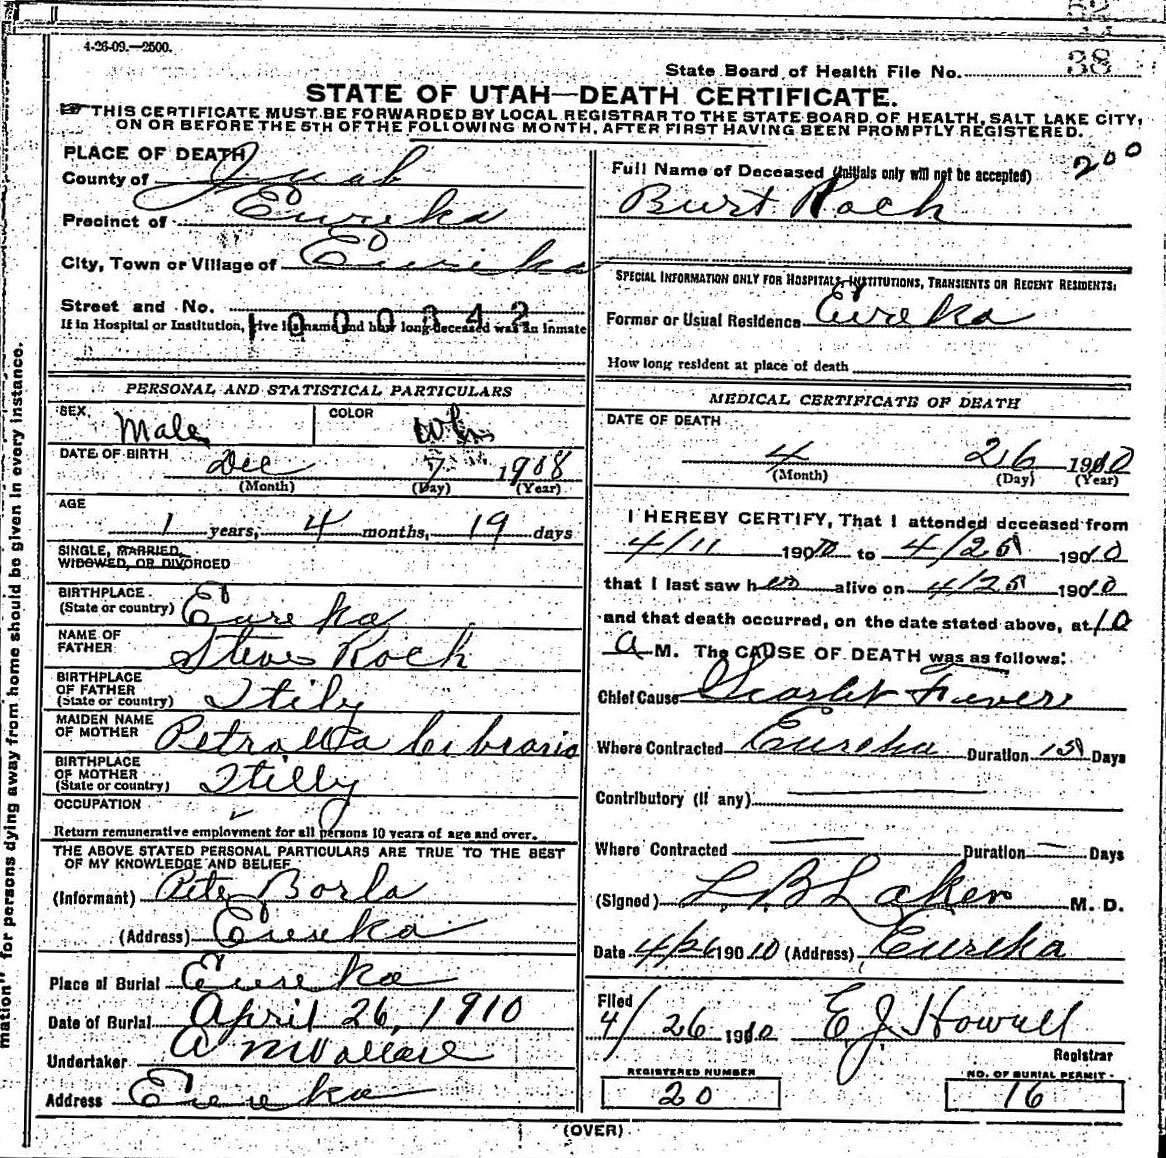 4-26-09.—2500.
38
State Board of Health File No.
STATE OF UTAH—DEATH CERTIFICATE.
THIS CERTIFICATE MUST BE FORWARDED BY LOCAL REGISTRAR TO THE STATE BOARD OF HEALTH, SALT LAKE CITY,
ON OR BEFORE THE 5TH OF THE FOLLOWING MONTH, AFTER FIRST HAVING BEEN PROMPTLY REGISTERED.
200
PLACE OF DEATH
County of Juab
Precinct of Eureka
City, Town or Village of Eureka
Street and No.
1000342
If in Hospital or Institution, give its name and how long deceased was an inmate
Full Name of Deceased (Initials only will not be accepted)
Burt Rock
SPECIAL INFORMATION ONLY FOR HOSPITALS, INSTITUTIONS, TRANSIENTS OR RECENT RESIDENTS:
Former or Usual Residence Eureka
How long resident at place of death
PERSONAL AND STATISTICAL PARTICULARS
SEX Male COLOR Wh
DATE OF BIRTH Dec 7 1908
(Month) (Day) (Year)
AGE
1 years, 4 months, 19 days
SINGLE, MARRIED,
WIDOWED, OR DIVORCED
BIRTHPLACE
(State or country) Eureka
NAME OF
FATHER Steve Rock
BIRTHPLACE
OF FATHER
(State or country) Itily
MAIDEN NAME
OF MOTHER
BIRTHPLACE
OF MOTHER
(State or country) Itilly
OCCUPATION
Return remunerative employment for all persons 10 years of age and over.
THE ABOVE STATED PERSONAL PARTICULARS ARE TRUE TO THE BEST
OF MY KNOWLEDGE AND BELIEF
(Informant) Pete Borla
(Address) Eureka
Place of Burial Eureka
Date of Burial April 26, 1910
Undertaker A M Wallace
Address Eureka
MEDICAL CERTIFICATE OF DEATH
DATE OF DEATH
4 26 1910
(Month) (Day) (Year)
I HEREBY CERTIFY, That I attended deceased from
4/11 19010 to 4/25 19010
that I last saw h alive on 4/25 19010
and that death occurred, on the date stated above, at 10
A M. The CAUSE OF DEATH was as follows:
Chief Cause Scarlet Fever
Where Contracted Eureka Duration 15 Days
Contributory (if any)
Where Contracted Duration — Days
(Signed) L. B Laker M. D.
Date 4/26 19010 (Address) Eureka
Filed
4/26 1910 E J Howell
Registrar
REGISTERED NUMBER
20
NO. OF BURIAL PERMIT
16
(OVER)
mation" for persons dying away from home should be given in every instance.